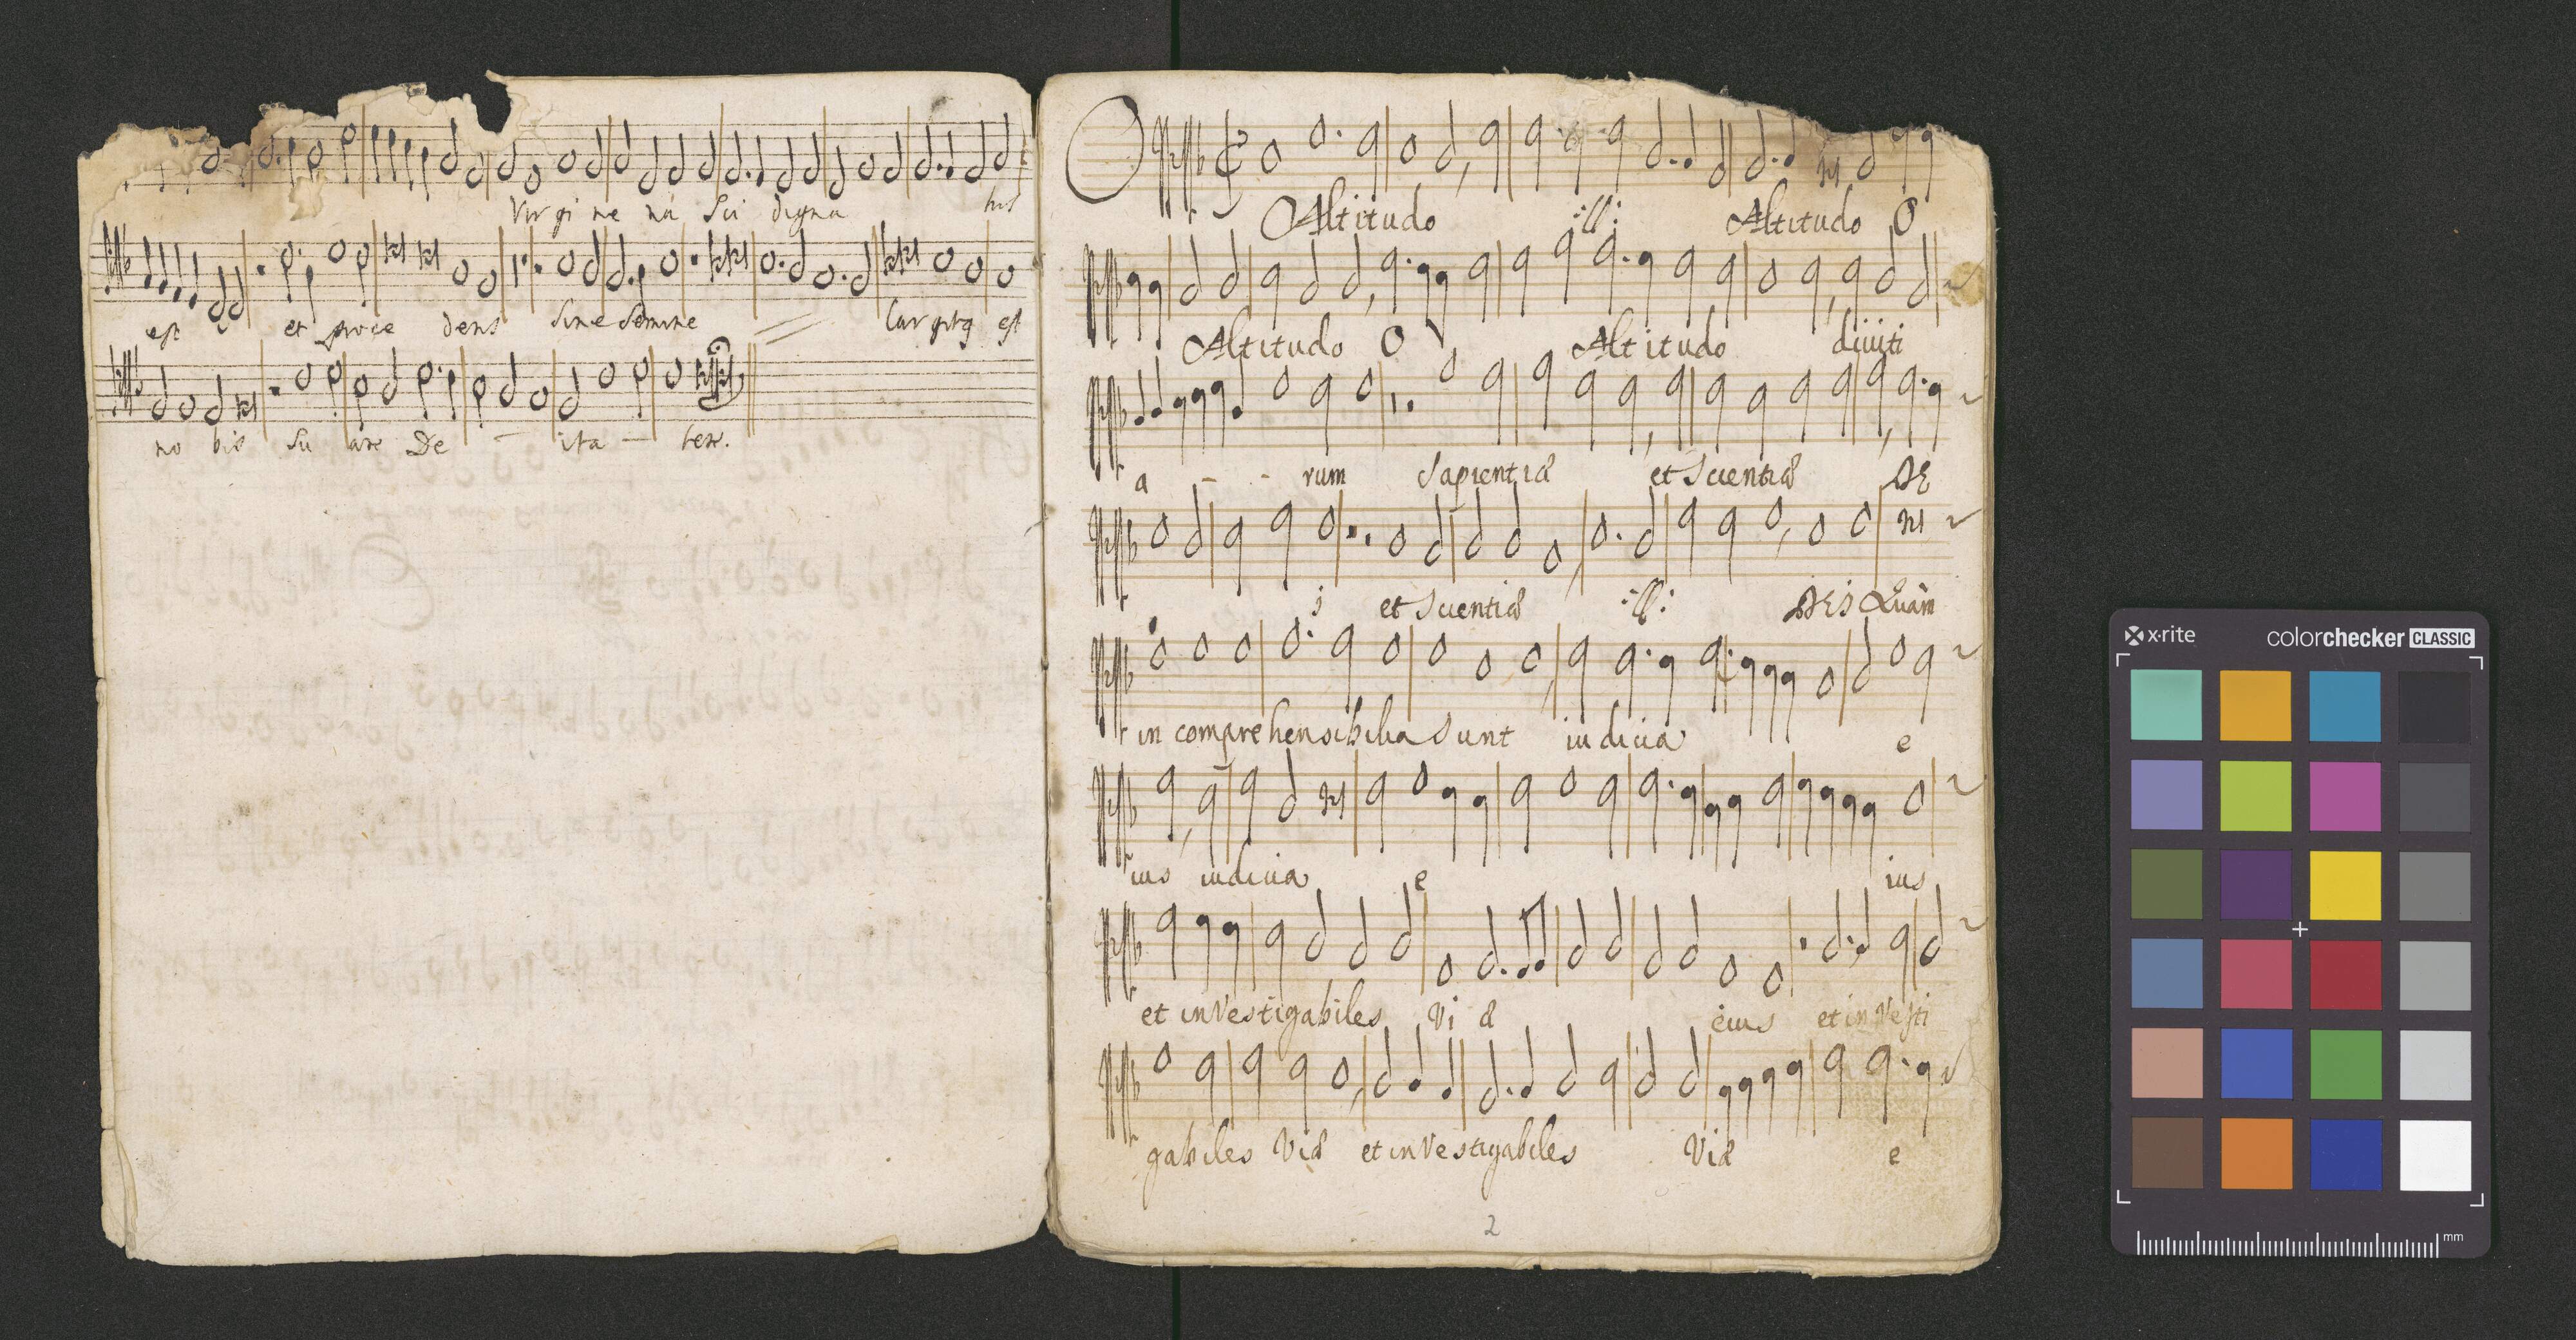 Virgi ne na Sci digna tus
est et proce dens Sine Semine largitq est
no bis Su am De - ita - tem.
O Altitudo :ll: Altitudo O
Altitudo O Altitudo diuiti
a - - rum Sapientiæ et Scientiæ DE
i et Scientiæ :ll: DEI Quàm
in comprehensibilia Sunt iudicia e
ius iudicia e ius
et inVestigabiles Vi æ eius et in Vesti
gabiles Viæ et inVestigabiles Viæ e
2
x·rite colorchecker CLASSIC
mm